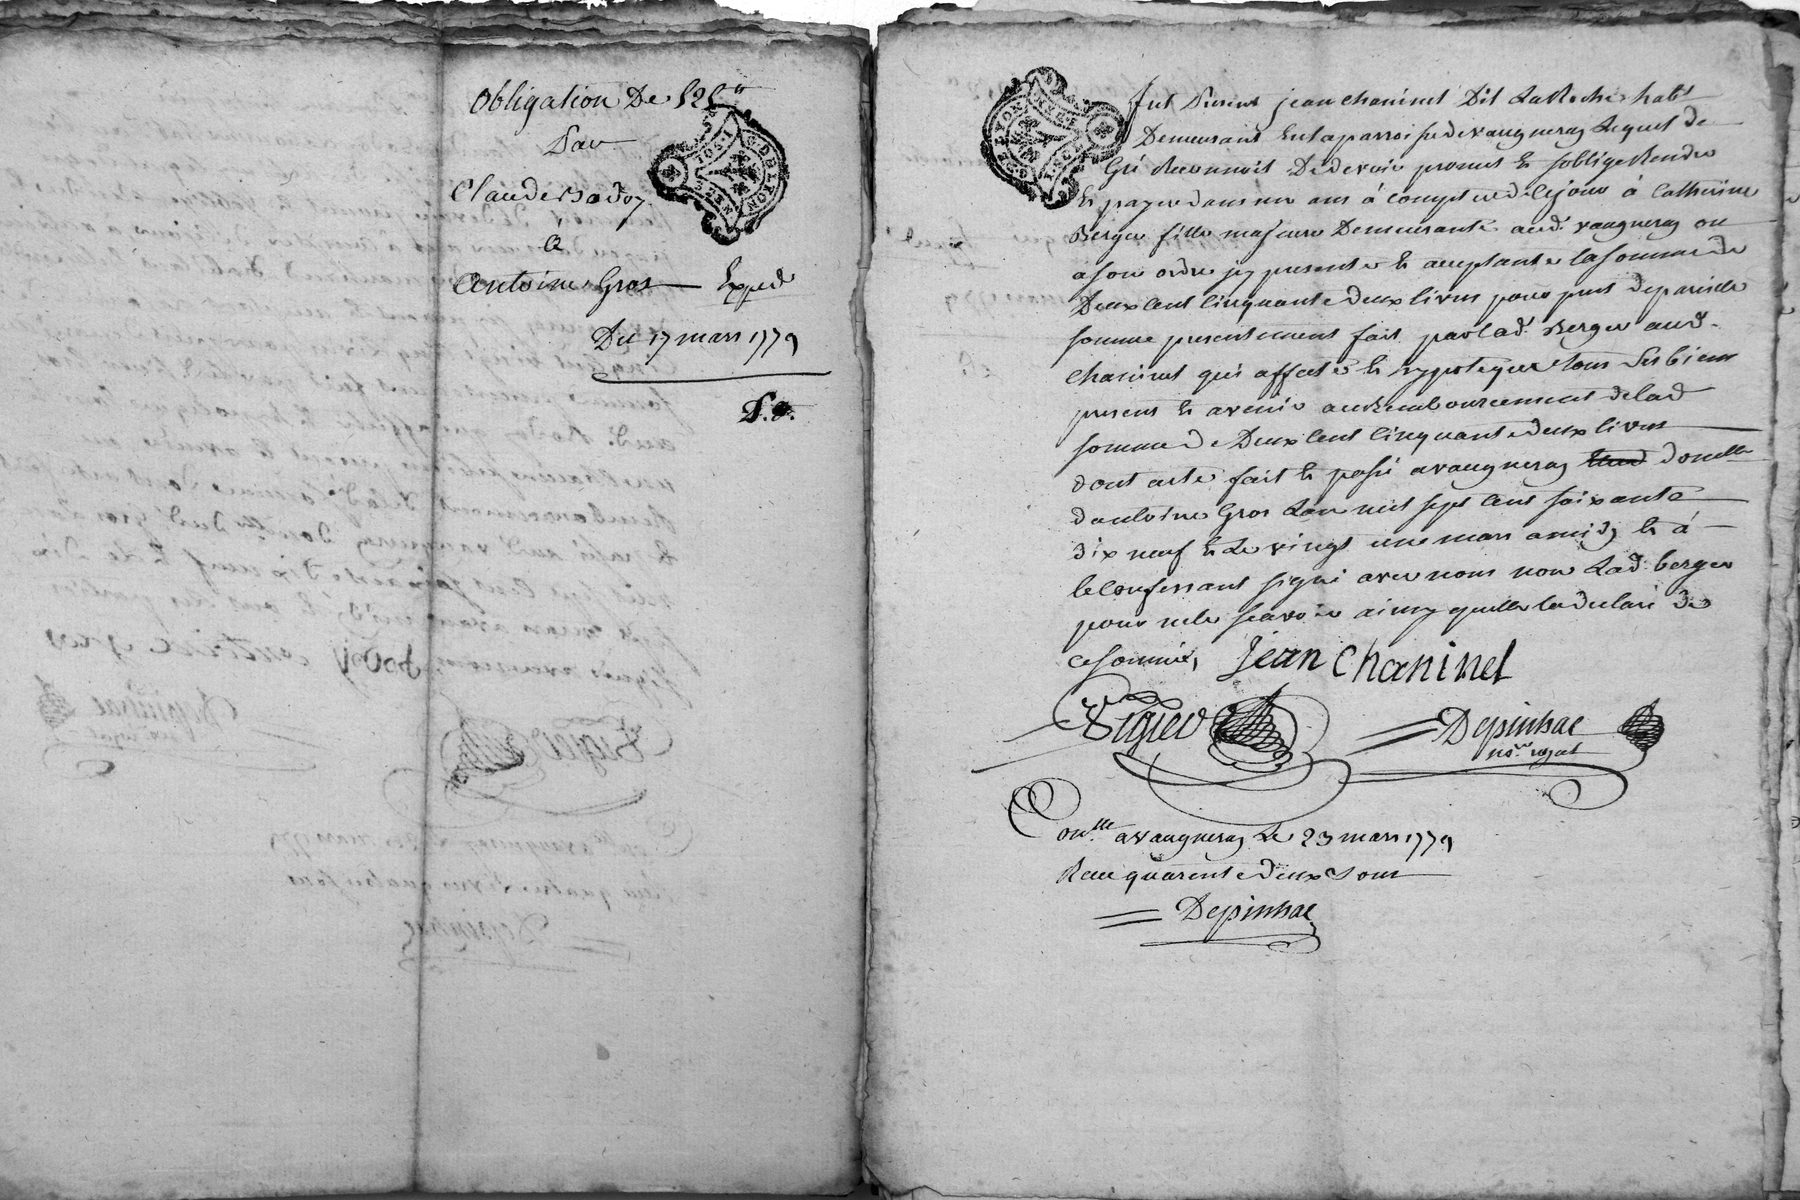 Obligation De 525ᵗᵗ
Par
Claude Badoy
à
Antoine Gros Exped
Du 17 mars 1779
Fut Present jean chaninel Dit LaRoche habt
Demeurant En la parroisse de vaugneray Lequel de
Gré Reconnoit De devoir promet & soblige Rendre
& payer dans un ans à compter de ce jour à Catherine
Berger fille majeure Demeurante aud. vaugneray ou
a son ordre icy presente & acceptante la somme de
Deux Cent Cinquante deux livres pour pret de pareille
somme presentement fait par lad. Berger aud.
chaninel qui affecte & hypoteque tous Ses biens
present & avenir au Remboursement de lad
somme de Deux Cent Cinquante deux livres
dont acte fait & passé a vaugneray domlle
dantoine Gros Lan mil sept Cent soixante
dix neuf & Le vingt une mars a midy & à
le Confessant signé avec nous non Lad berger
pour ne le scavoir ainsy quelle la declaré de
ce sommée, jean chaninel
Vigier Depinhac
nore. royal
Conlle a vaugneray Le 23 mars 1779
Reçu quarente deux sous
Depinhac